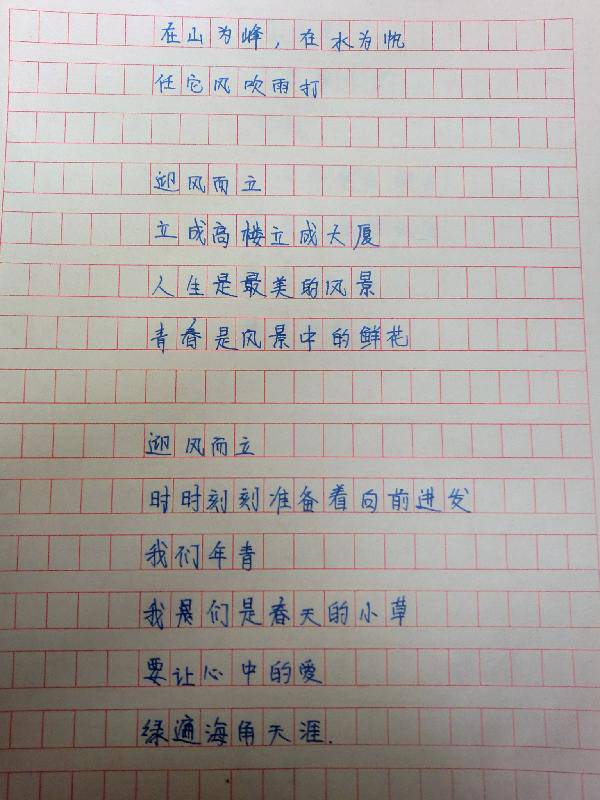 在山为峰，在水为帆
任它风吹雨打
迎风而立
立成高楼立成大厦
人生是最美的风景
青春是风景中的鲜花
迎风而立
时时刻刻准备着向前进发
我们年青
我们是春天的小草
要让心中的爱
绿遍海角天涯.